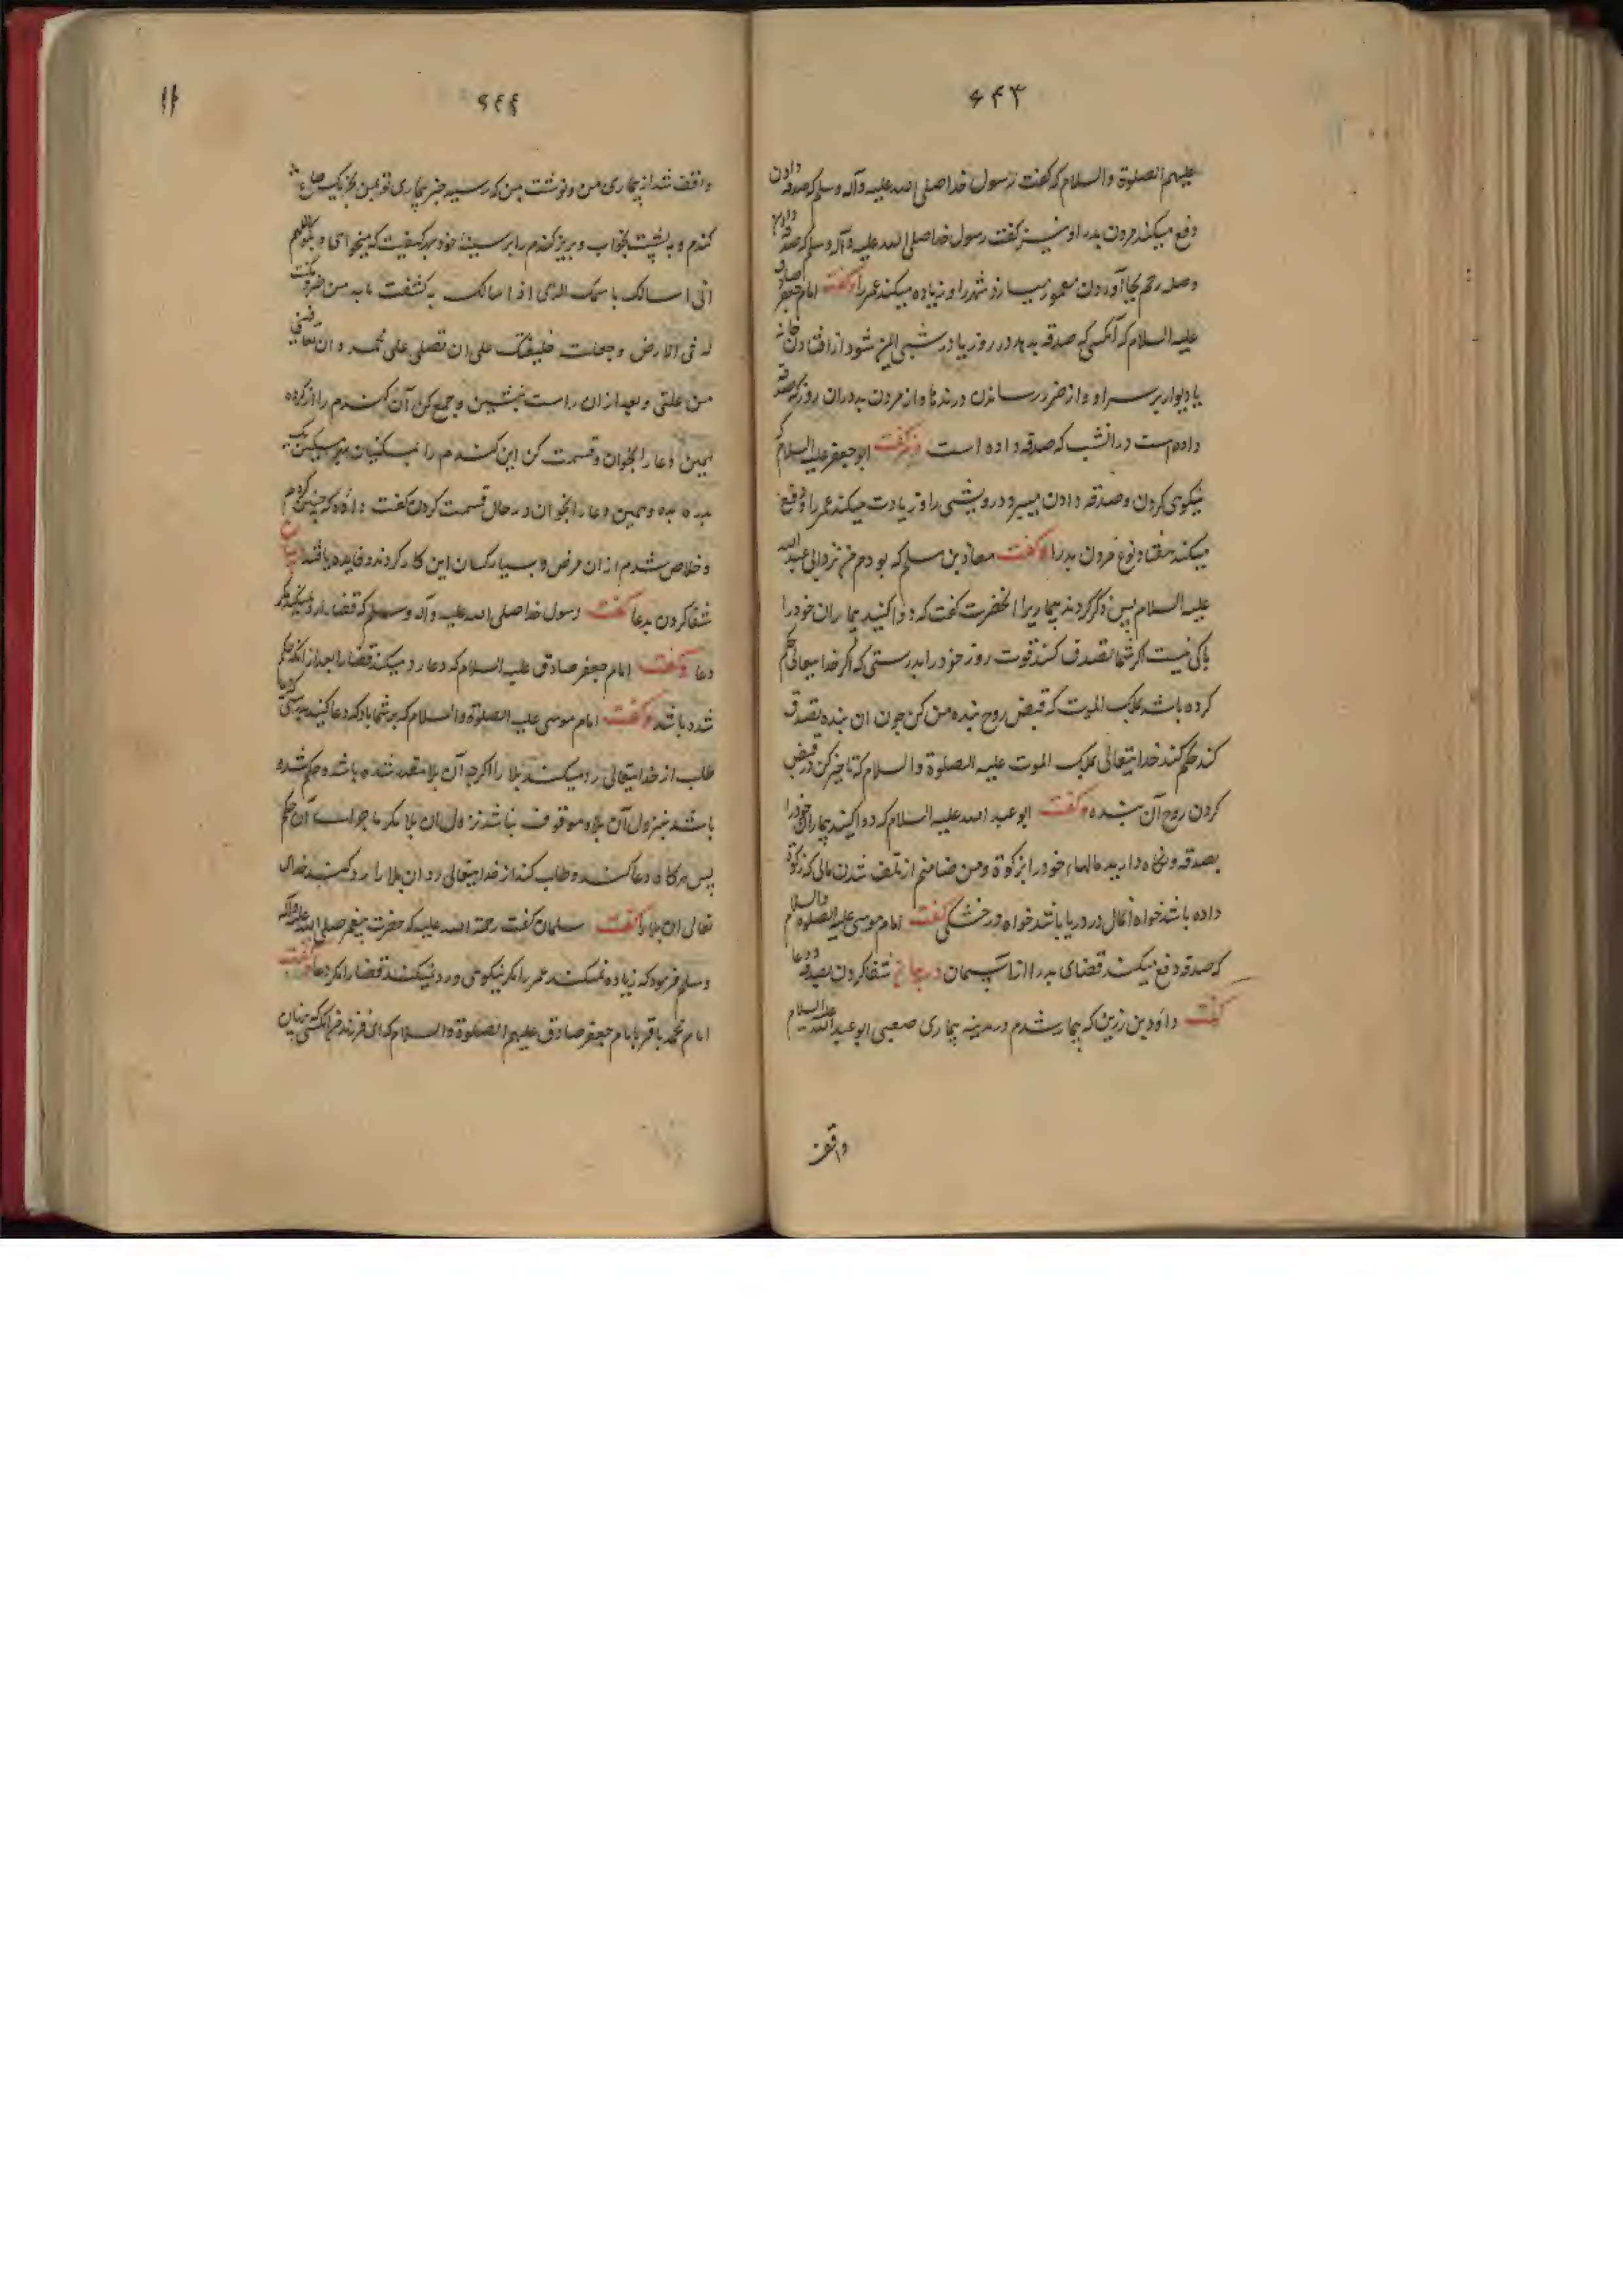 ۶۴۳
علیهم الصلوة والسلام که گفت رسول خدا صلی الله علیه وآله وسلم که صدقه دادن
دفع میکند مردن بد را و نیز گفت رسول خدا صلی الله علیه وآله وسلم که صدقه دادن
وصله رحم بجا آوردن معمور میسازد شهر را و زیاده میکند عمر را وگفت امام جعفر صادق
علیه السلام که آنکسی که صدقه بدهد در روز یا در شبی ایمن شود از افتادن خانه
یا دیوار بر سر او و از ضرر رساندن درندها و از مردن بد دران روز که صدقه
داده است در انشب که صدقه داده است و نیز گفت ابو جعفر علیه السلام که
نیکوی کردن و صدقه دادن میبرد درویشی را و زیادت میکند عمر را و دفع
میکند هفتاد نوع مردن بد را وگفت معاذ بن مسلم که بودم من نزد ابی عبد الله
علیه السلام پس ذکر کردند بیماریرا انحضرت گفت که دوا کنید بیماران خود را
باکی نیست اگر شما تصدق کنند قوت روز خود را بدرستی که اگر خدایتعالی حکم
کرده باشد بملک الموت که قبض روح بنده من کن چون ان بنده تصدق
کند حکم کند خدایتعالی بملک الموت علیه الصلوة والسلام که تاخیر کن در قبض
کردن روح آن بنده وگفت ابو عبد الله علیه السلام که دوا کنید بیماران خود را
بصدقه و نگاه دارید مالهاء خود را بزکوة ومن ضامنم از تلف شدن مالی که زکوة
داده باشد خواه آنمال در دریا باشد خواه در خشکی گفت امام موسی علیه الصلوة والسلام
که صدقه دفع میکند قضای بد را از آسمان شفا کردن بصدقه ودعا
گفت داود بن زربی که بیمار شدم در مدینه بیماری صعبی ابو عبد الله علیه السلام
واقف
۶۴۴
واقف شد از بیماری من و نوشت بمن که رسید خبر بیماری تو بمن بخر یک صاع
گندم و به پشت بخواب و بریز گندم را بر سینه خود بهر کیفیت که میخواهی و بگو اللهم
انی اسالک باسمک الذی اذا سالک به کشفت مابه من ضر ومکنت
له فی الارض وجعلته خلیفتک علی ان تصلی علی محمد و ان تعافینی
من علتی و بعد ازان راست بنشین و جمع کن آن گندم را از گرد
همین دعا را بخوان و قسمت کن این گندم را بمسکینان بهر مسکین یک
مد بده و همین دعا را بخوان در حال قسمت کردن گفت داود که چنین کردم
وخلاص شدم ازان مرض و بسیار کسان این کار کردند و فایده یافتند بیان
شفا کردن بدعا گفت رسول خدا صلی الله علیه وآله وسلم که قضا را رد نمیکند مگر
دعا وگفت امام جعفر صادق علیه السلام که دعا رد میکند قضا را بعد از آنکه محکم
شده باشد وگفت امام موسی علیه الصلوة والسلام که بر شما باد که دعا کنید بدرستی که دعا
طلب از خدایتعالی رد میکند بلا را اگرچه آن بلا مقدر شده باشد و حکم شده
باشد بنزول آن بلا و موقوف نباشد نزول ان بلا مگر آن حکم
پس هرگاه دعا کنند و طلب کند از خدایتعالی رد ان بلا را رد کند خدای
تعالی ان بلا را گفت سلمان گفت رحمة الله علیه که حضرت پیغمبر صلی الله علیه وآله
وسلم فرمود که زیاده نمیکند عمر را مگر نیکوئی و رد نمیکند قضا را مگر دعا وگفت
امام محمد باقر بامام جعفر صادق علیهم الصلوة والسلام که ای فرزند هر آنکسی که پنهان